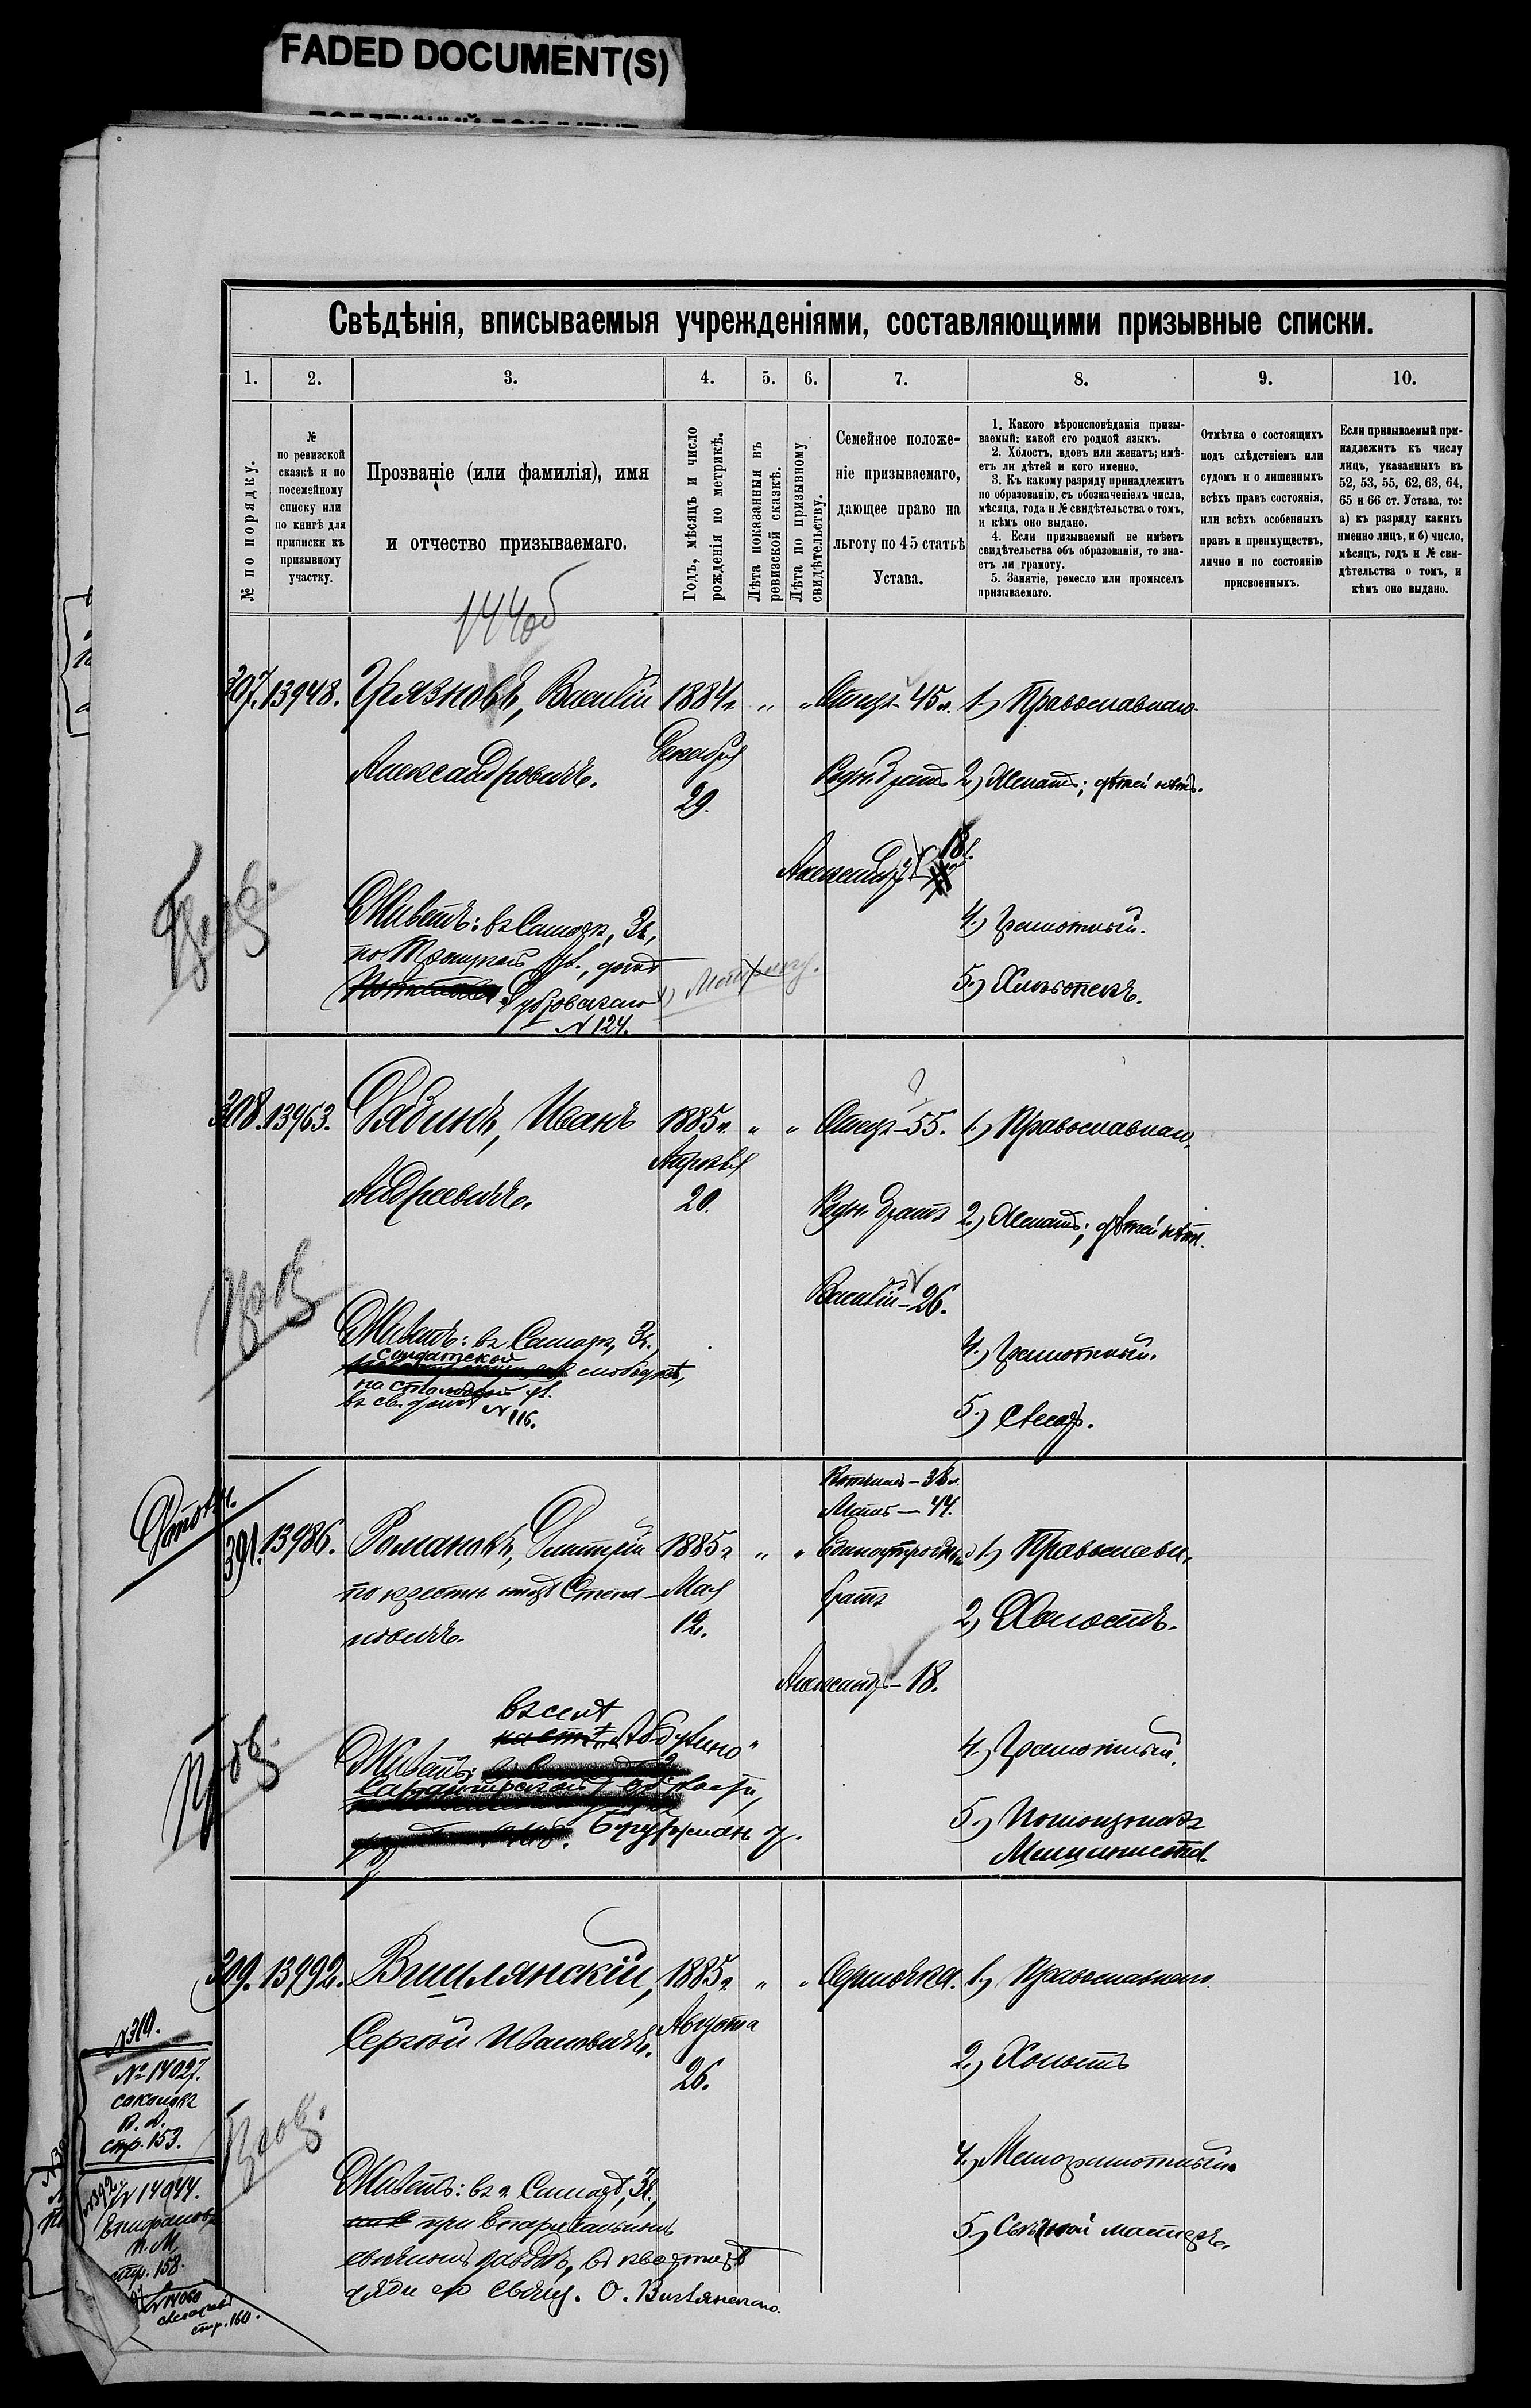 FADED DOCUMENT(S)
Свѣдѣнія, вписываемыя учрежденіями, составляющими призывные списки.
1. 2. 3. 4. 5. 6. 7. 8. 9. 10.
№ по порядку.
№
по ревизской
сказкѣ и по
посемейному
списку или
по книгѣ для
приписки къ
призывному
участку.
Прозваніе (или фамилія), имя
и отчество призываемаго.
Годъ, мѣсяцъ и число
рожденія по метрикѣ.
Лѣта показанныя въ
ревизской сказкѣ.
Лѣта по призывному
свидѣтельству.
Семейное положе-
ніе призываемаго,
дающее право на
льготу по 45 статьѣ
Устава.
1. Какого вѣроисповѣданія призы-
ваемый; какой его родной языкъ.
2. Холостъ, вдовъ или женатъ; имѣ-
етъ ли дѣтей и кого именно.
3. Къ какому разряду принадлежитъ
по образованію, съ обозначеніемъ числа,
мѣсяца, года и № свидѣтельства о томъ,
и кѣмъ оно выдано.
4. Если призываемый не имѣетъ
свидѣтельства объ образованіи, то зна-
етъ ли грамоту.
5. Занятіе, ремесло или промыселъ
призываемаго.
Отмѣтка о состоящихъ
подъ слѣдствіемъ или
судомъ и о лишенныхъ
всѣхъ правъ состоянія,
или всѣхъ особенныхъ
правъ и преимуществъ,
лично и по состоянію
присвоенныхъ.
Если призываемый при-
надлежитъ къ числу
лицъ, указанныхъ въ
52, 53, 55, 62, 63, 64,
65 и 66 ст. Устава, то:
а) къ разряду какихъ
именно лицъ, и б) число,
мѣсяцъ, годъ и № сви-
дѣтельства о томъ, и
кѣмъ оно выдано.
144об
307. 13948. Грязновъ, Василій 1884 г. " " Отецъ - 45 л. 1.) Православнаго
Александровичъ. Декабря
29.
Родн. братъ 2.) Женатъ; дѣтей нѣтъ.
Александръ 18 л.
Живетъ: въ Самарѣ, 3 ч., 4.) Грамотный.
по Троицкой ул., домъ
5.) Хлѣбопекъ.
№ 124.
308. 13963. Иванъ 1885 г. " " Отецъ - 55. 1.) Православнаго
Андреевичъ. Апрѣля
20.
Родн. братъ 2.) Женатъ; дѣтей нѣтъ.
Василій - 26.
Живетъ: въ Самарѣ, 3 ч., 4.) Грамотный.
солдатской слободкѣ,
въ св. домѣ № 116. 5.) Слесарь.
Вотчимъ - 38 л.
Мать - 44.
391. 13986. Романовъ, Дмитрій 1885 г. " " Единоутробный 1.) Православн.
по крестн. отцу Степа- Мая братъ
новичъ. 12. 2.) Холостъ.
Александръ - 18.
въ селѣ
Живетъ: "Абдулино" 4.) Грамотный.
5.) Помощникъ
Машиниста.
309. 13992. Вишлянскій, 1885 г. " " Одиночка. 1.) Православнаго
Сергѣй Ивановичъ. Августа
26. 2.) Холостъ
Живетъ: въ г. Самарѣ, 3 ч., 4.) Малограмотный.
при Епархіальномъ
свѣчномъ заводѣ, въ квартирѣ 5.) Свѣчной мастеръ.
дяди его свящ. О. Вишлянскаго.
№ 319.
№ 14027.
Соколовъ
В. А.
стр. 153.
№ 392
№ 14944.
Епифановъ
П. М.
стр. 158.
№ 14060
стр. 160.